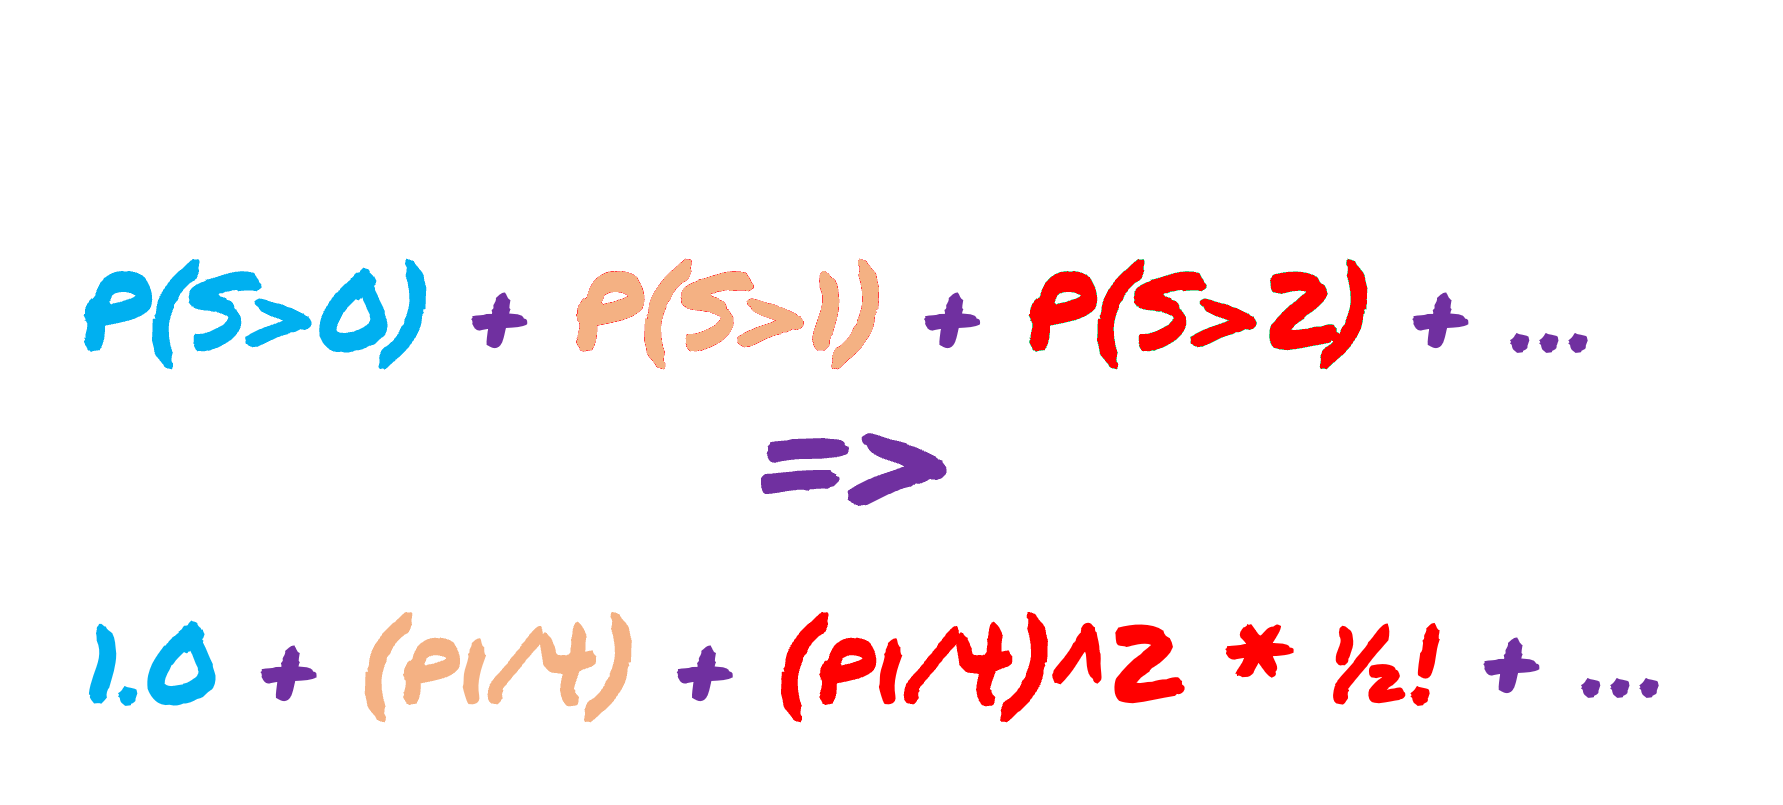 P(S>0) + P(S>1) + P(S>2) + ...
=>
1.0 + (PI/4) + (PI/4)^2 * ½! + ...